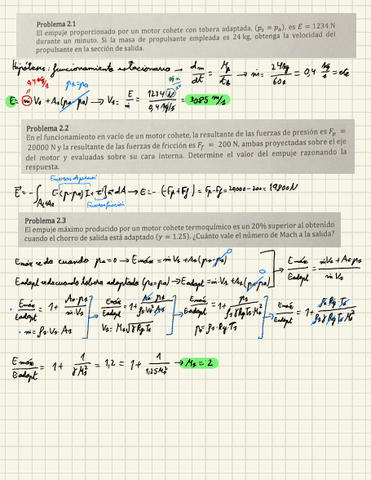 Problema 2.1
El empuje proporcionado por un motor cohete con tobera adaptada, (pₛ = pₐ), es E = 1234 N
durante un minuto. Si la masa de propulsante empleada es 24 kg, obtenga la velocidad del
propulsante en la sección de salida.
Hipótesis: funcionamiento estacionario → dm/dt = Mp/tb → ṁ = 24kg/60s = 0,4 kg/s = cte
0,4 kg/s pₛ=pₐ
E = ṁVₛ + Aₛ(pₛ-pₐ) → Vₛ = E/ṁ = 1234 N / 0,4 kg/s = 3085 m/s
Problema 2.2
En el funcionamiento en vacío de un motor cohete, la resultante de las fuerzas de presión es Fₚ =
20000 N y la resultante de las fuerzas de fricción es F_f = 200 N, ambas proyectadas sobre el eje
del motor y evaluadas sobre su cara interna. Determine el valor del empuje razonando la
respuesta.
E = -∫ [(p-pₐ) I + τ] n dA → E = -(-Fp+Ff) = Fp-Ff = 20000-200 = 19800N
Problema 2.3
El empuje máximo producido por un motor cohete termoquímico es un 20% superior al obtenido
cuando el chorro de salida está adaptado (γ = 1.25). ¿Cuánto vale el número de Mach a la salida?
Emáx se da cuando pₐ=0 → Emáx = ṁVₛ + Aₛ(pₛ-pₐ)
Eadapt adecuando tobera adaptada (pₛ=pₐ) → Eadapt = ṁVₛ + Aₛ(pₛ-pₐ)
Emáx/Eadapt = (ṁVₛ + Aₛpₛ)/(ṁVₛ)
Emáx/Eadapt = 1 + Aₛpₛ/(ṁVₛ)
ṁ = ρₛVₛAₛ
Emáx/Eadapt = 1 + Aₛpₛ/(ρₛVₛ²Aₛ)
Vₛ = Mₛ√(γRgTₛ)
Emáx/Eadapt = 1 + pₛ/(ρₛγRgTₛMₛ²)
pₛ = ρₛRgTₛ
Emáx/Eadapt = 1 + ρₛRgTₛ/(ρₛγRgTₛMₛ²)
Emáx/Eadapt = 1 + 1/(γMₛ²) = 1,2 = 1 + 1/(1,25Mₛ²) → Mₛ = 2